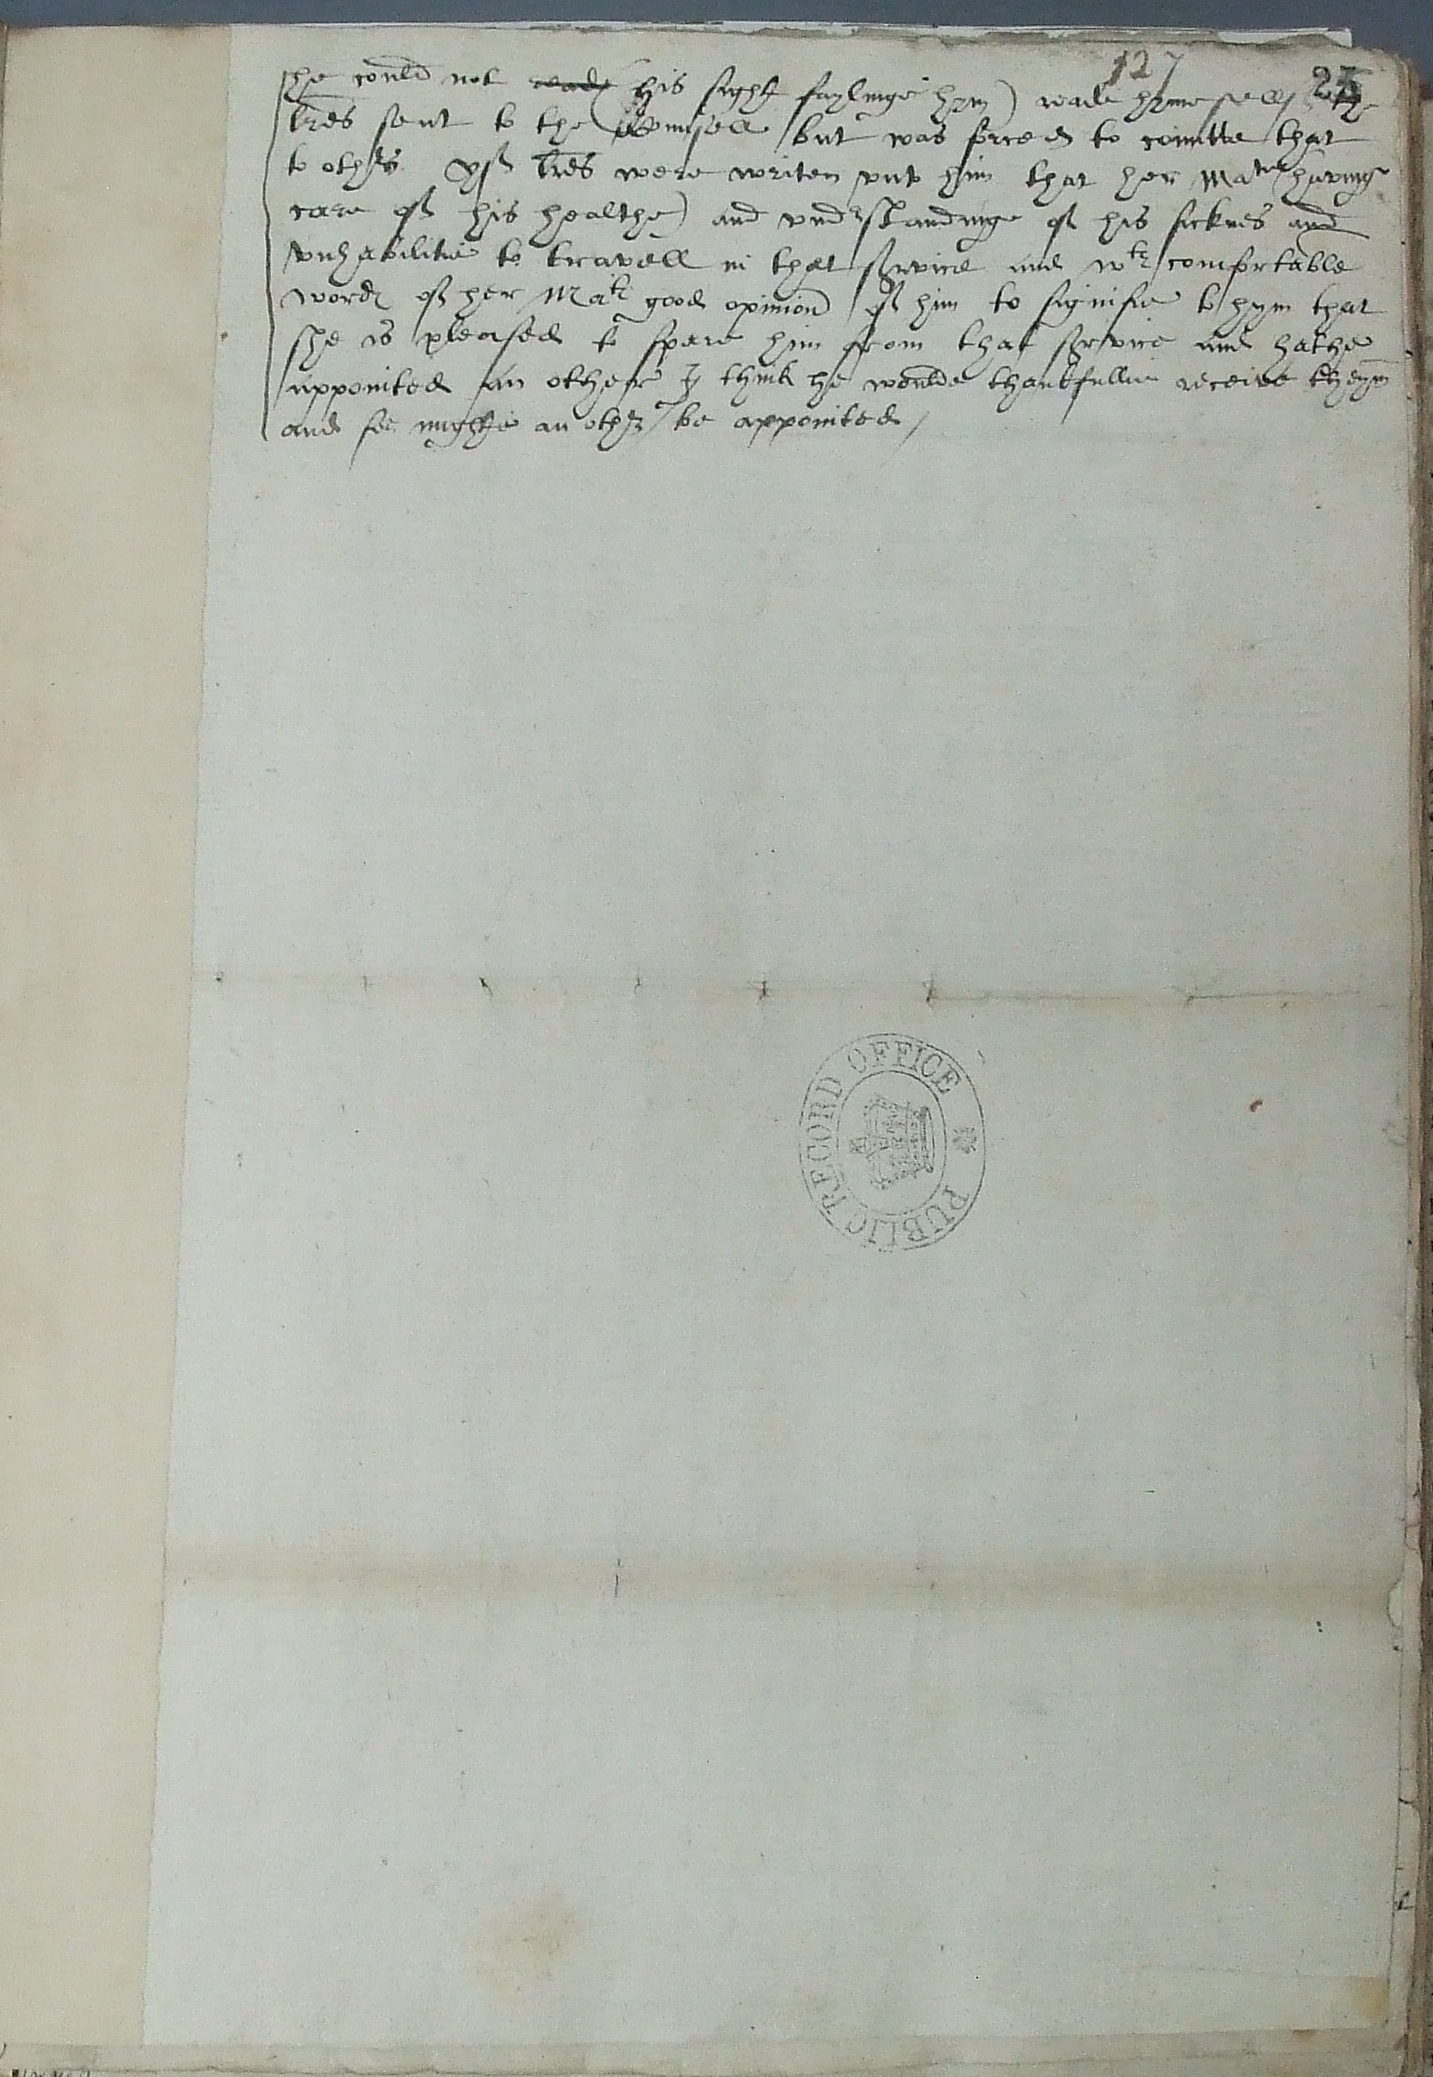 127
23
he could not reade (his sight faylinge hym) reade hymeselff the
lres sent to the Counsell but was forced to comitte that
to othrs yff lres were writen unto him that her Matie (having
care off his healthe) and vnderstandinge off his sicknes and
vnhabilitie to travell in that service and wth comfortable
words off her Mats good opinion off him to signifie to hym that
she is pleased to spare him from that service and hathe
appointed an other I think he woulde thankfullie receive theym
and soe mighte an other be appointed /
PUBLIC RECORD OFFICE